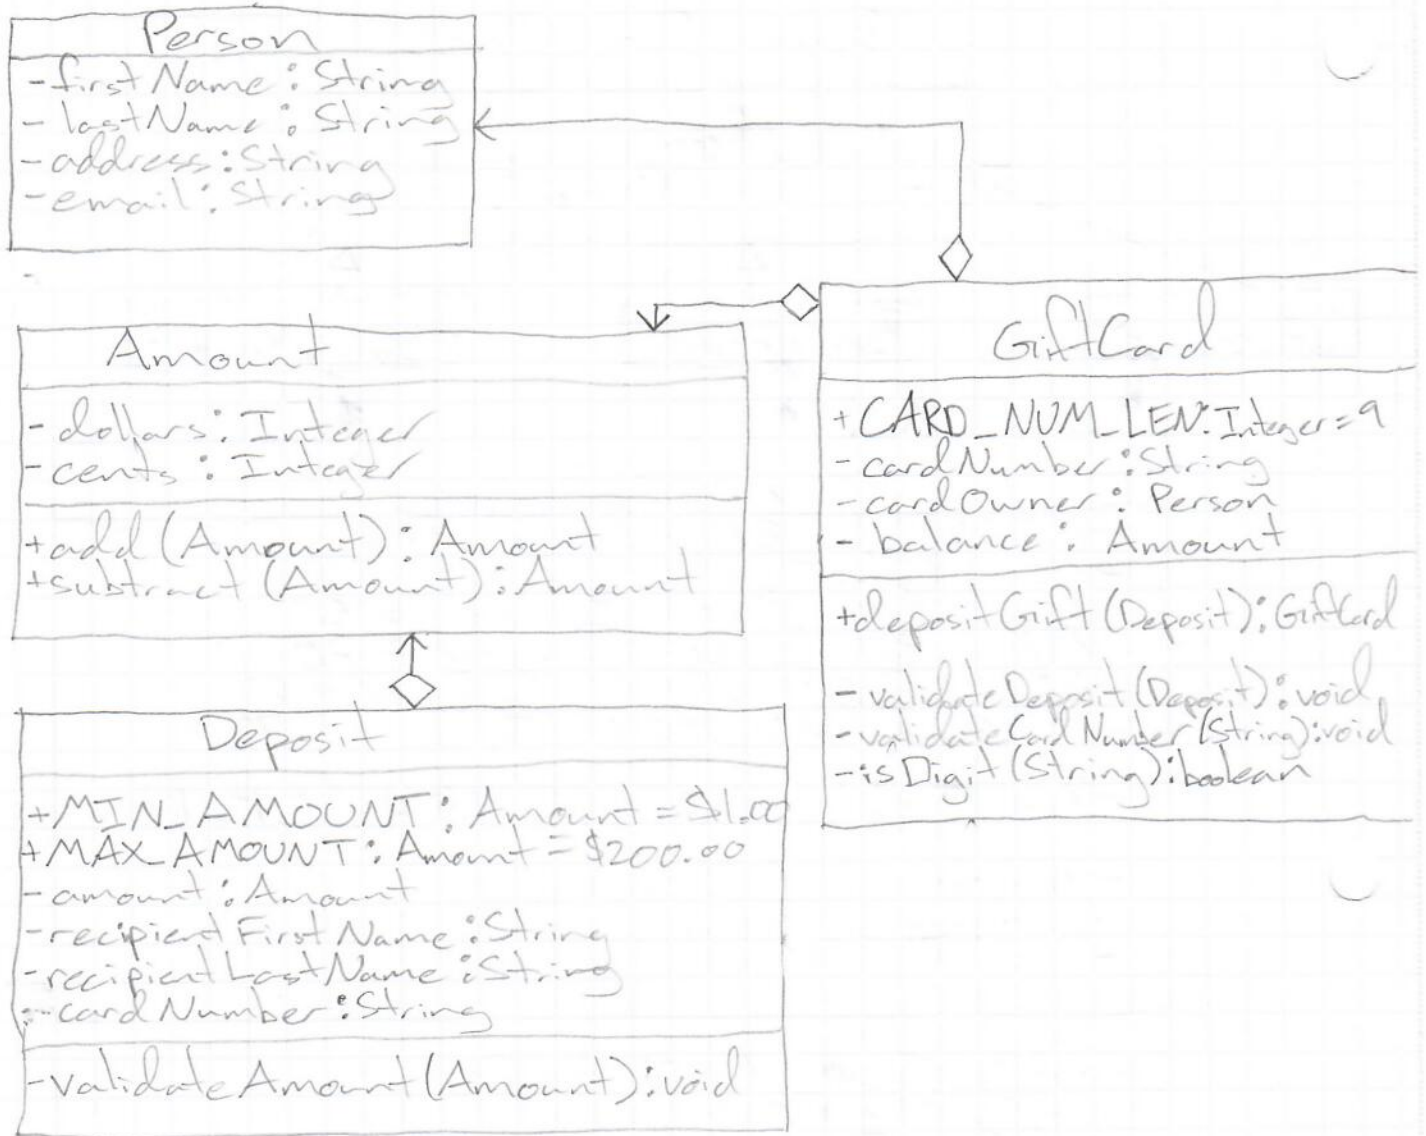 Person
-firstName: String
-lastName: String
-address: String
-email: String
Amount
-dollars: Integer
-cents: Integer
+add(Amount): Amount
+subtract(Amount): Amount
Deposit
+MIN_AMOUNT: Amount = $1.00
+MAX_AMOUNT: Amount = $200.00
-amount: Amount
-recipientFirstName: String
-recipientLastName: String
-cardNumber: String
-validateAmount(Amount): void
GiftCard
+CARD_NUM_LEN: Integer = 9
-cardNumber: String
-cardOwner: Person
-balance: Amount
+depositGift(Deposit): GiftCard
-validateDeposit(Deposit): void
-validateCardNumber(String): void
-isDigit(String): boolean